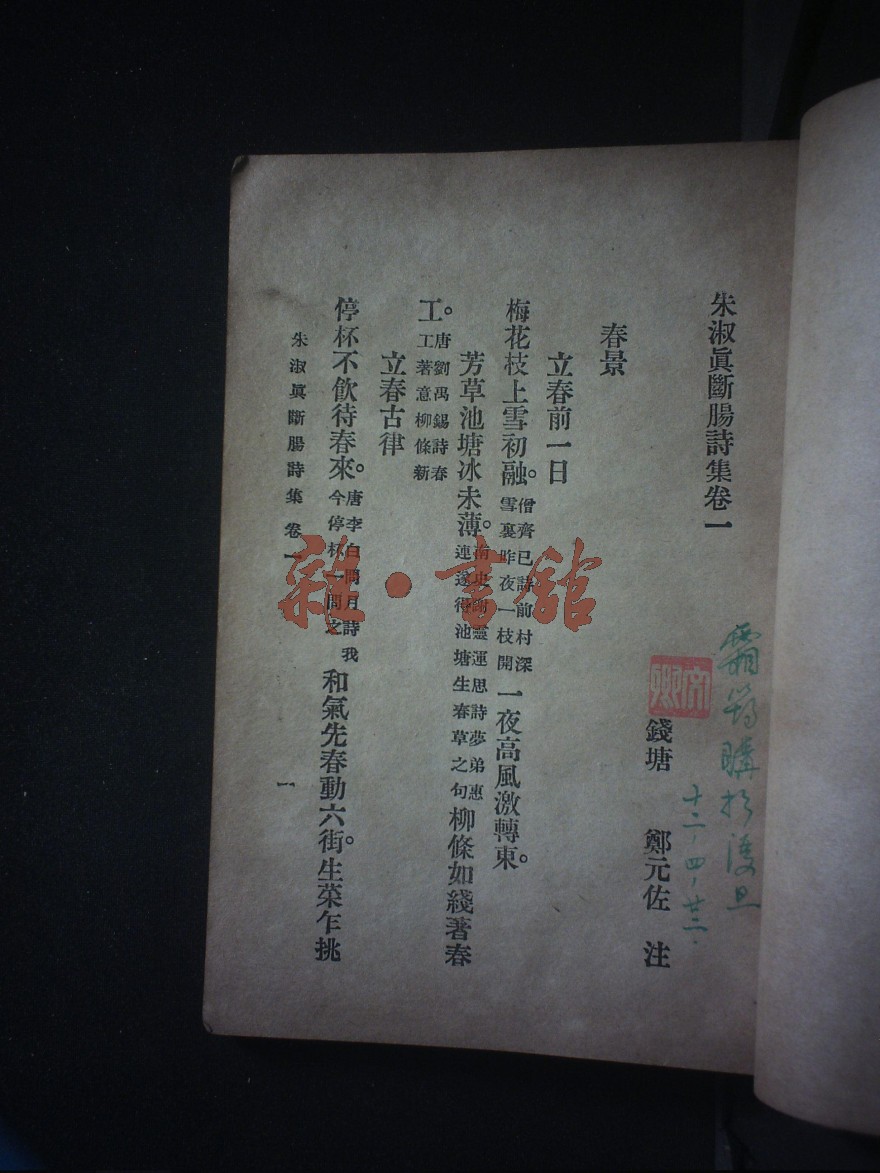 朱淑眞斷腸詩集卷一
錢塘 鄭元佐 注
春景
立春前一日
梅花枝上雪初融。僧齊已詩前村深雪裏昨夜一枝開一夜高風激轉東。
芳草池塘冰未薄。南史謝靈運思詩夢弟惠連遂得池塘生春草之句柳條如綫著春
工。唐劉禹錫詩春工著意柳條新
立春古律
停杯不飮待春來。唐李白問月詩我今停杯一問之和氣先春動六街。生菜乍挑
朱淑眞斷腸詩集 卷一
一
購於復旦
十二.四.廿三.
雜·書館